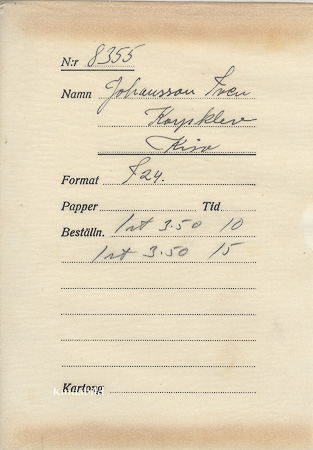 N:r 8355
Namn Johansson Sven
Korpklev
Kisa
Format F24.
Papper Tid
Beställn. 1 st 3.50 10
1 st 3.50 15
Kartong